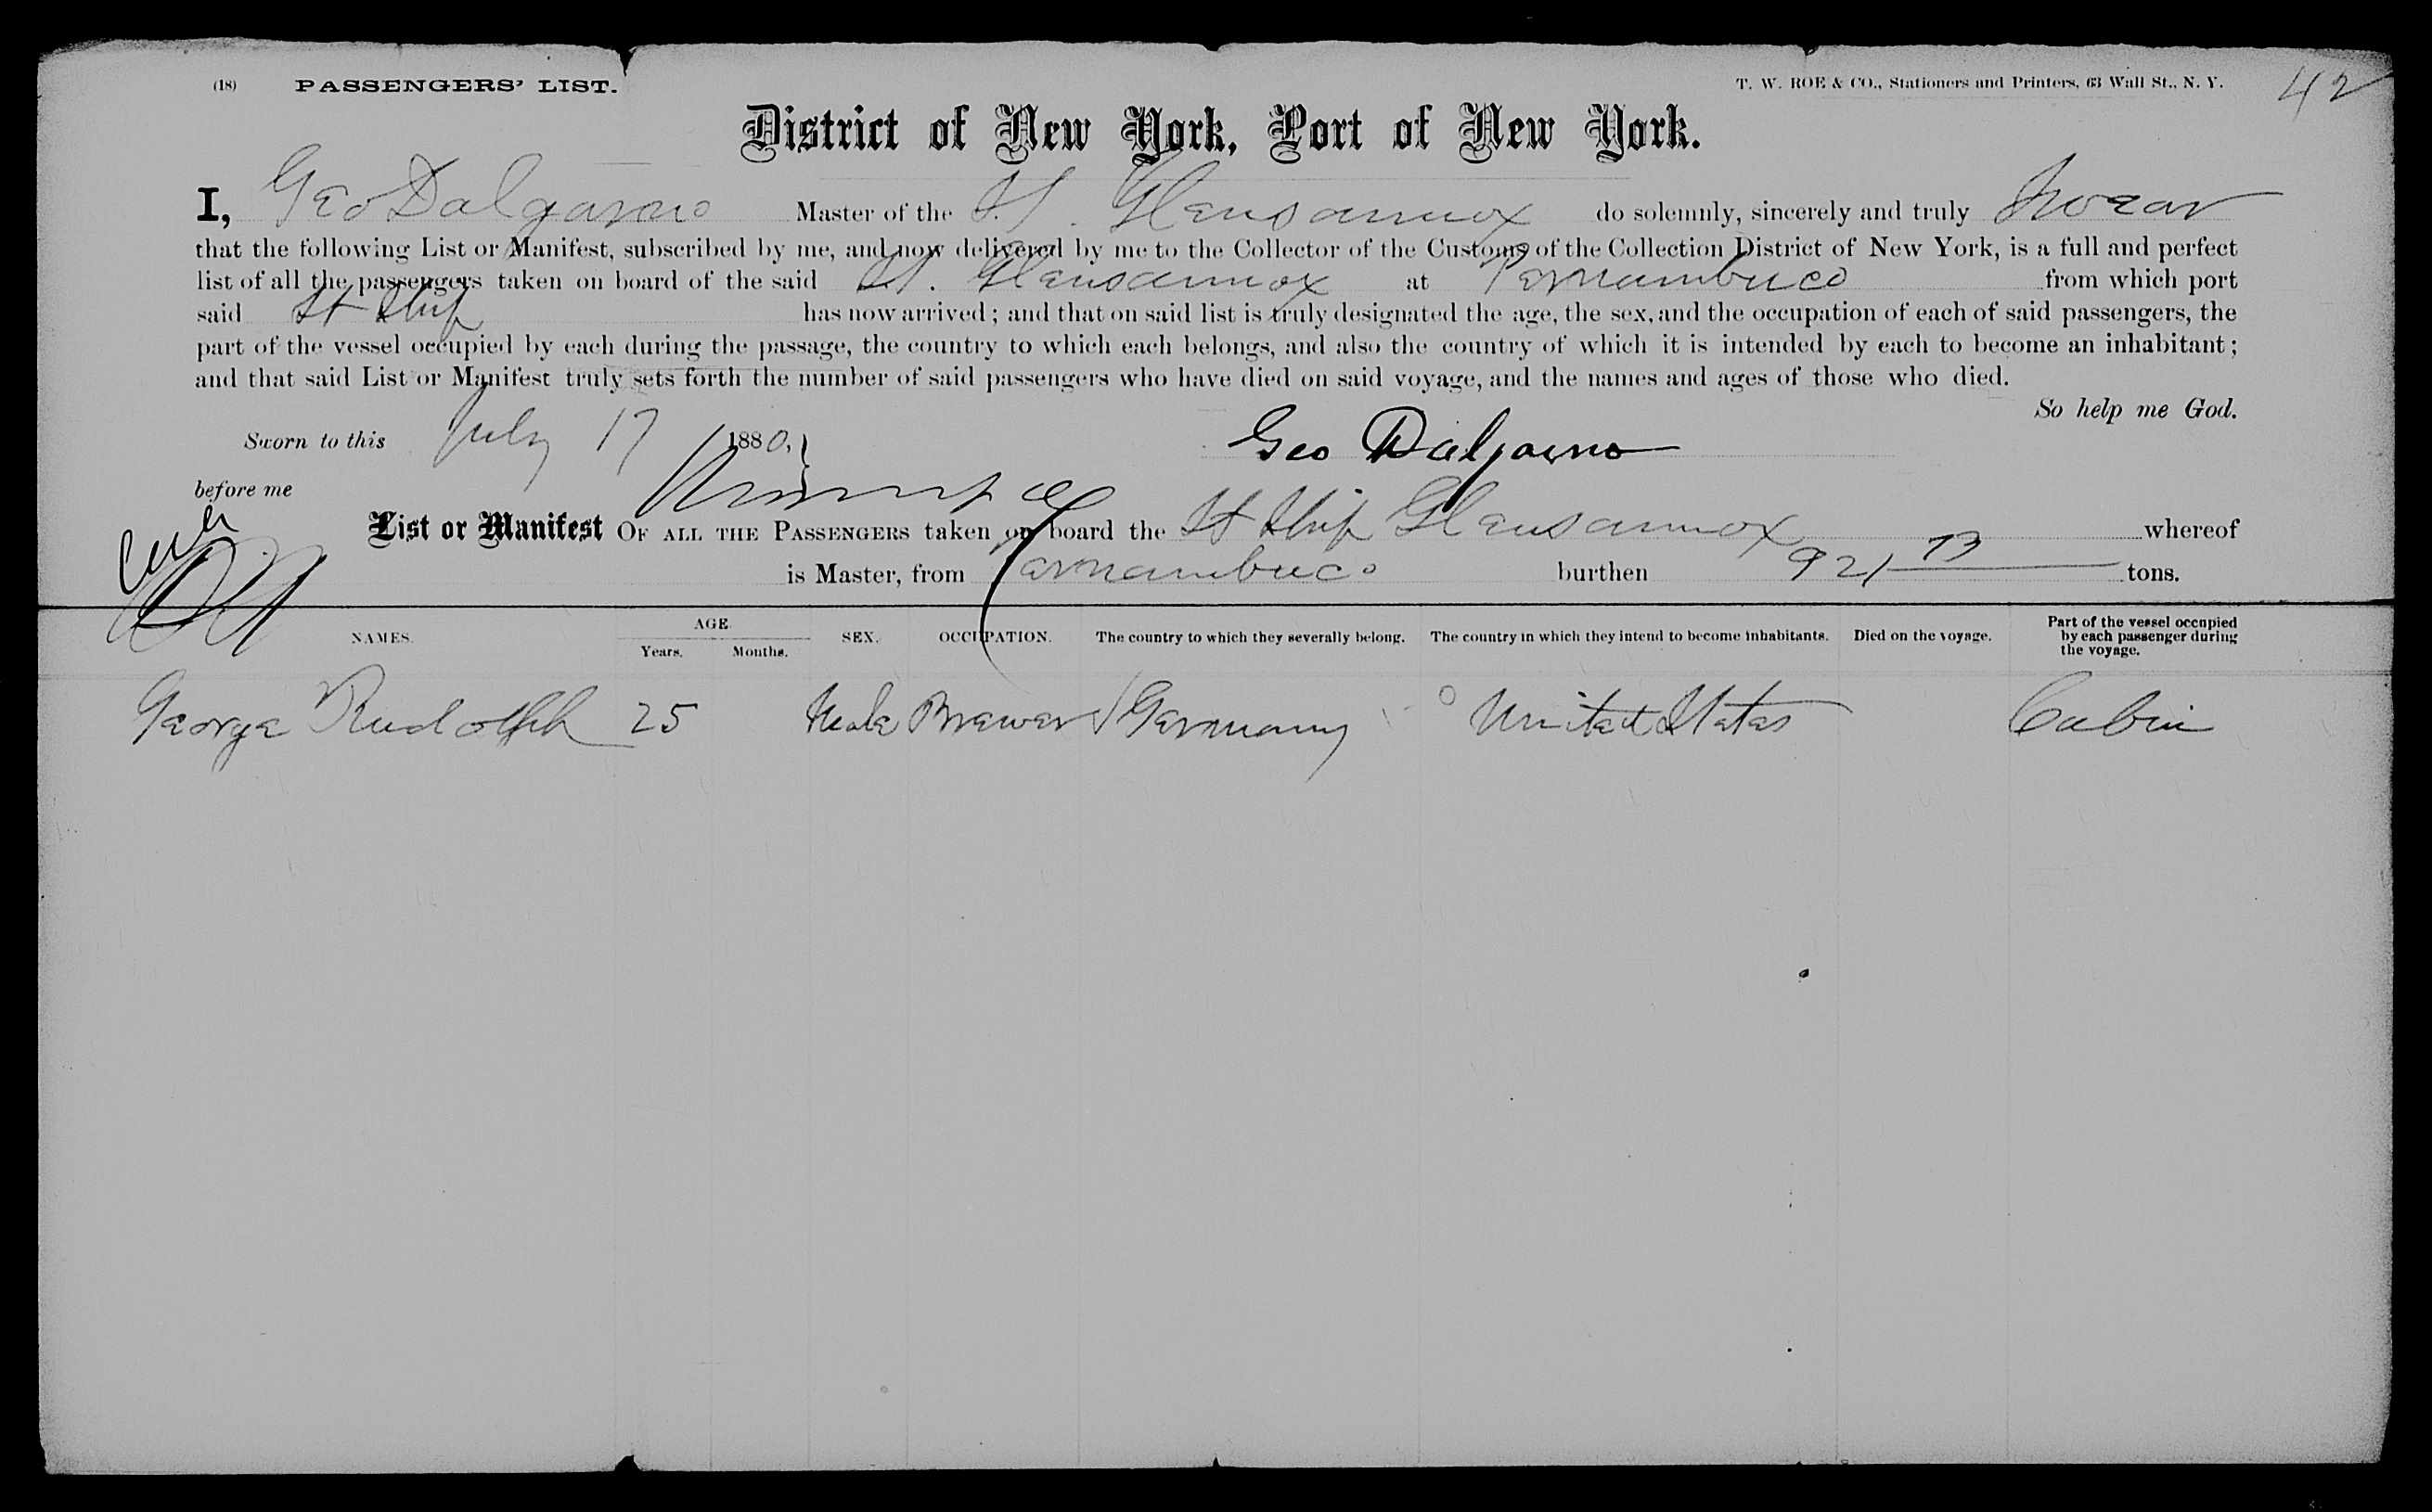 (18) PASSENGERS' LIST. T. W. ROE & CO., Stationers and Printers, 63 Wall St., N. Y. 42
District of New York, Port of New York.
I, Geo Dalgarno Master of the St. Glensannox do solemnly, sincerely and truly Swear
that the following List or Manifest, subscribed by me, and now delivered by me to the Collector of the Customs of the Collection District of New York, is a full and perfect
list of all the passengers taken on board of the said St. Glensannox at Pernambuco from which port
said St Ship has now arrived; and that on said list is truly designated the age, the sex, and the occupation of each of said passengers, the
part of the vessel occupied by each during the passage, the country to which each belongs, and also the country of which it is intended by each to become an inhabitant;
and that said List or Manifest truly sets forth the number of said passengers who have died on said voyage, and the names and ages of those who died.
So help me God.
Sworn to this July 17 1880, Geo Dalgarno
before me
List or Manifest OF ALL THE PASSENGERS taken on board the St Ship Glensannox whereof
is Master, from Pernambuco burthen 921 tons.
NAMES. AGE. Years. Months. SEX. OCCUPATION. The country to which they severally belong. The country in which they intend to become inhabitants. Died on the voyage. Part of the vessel occupied by each passenger during the voyage.
George Rudolph 25 Male Brewer Germany United States Cabin